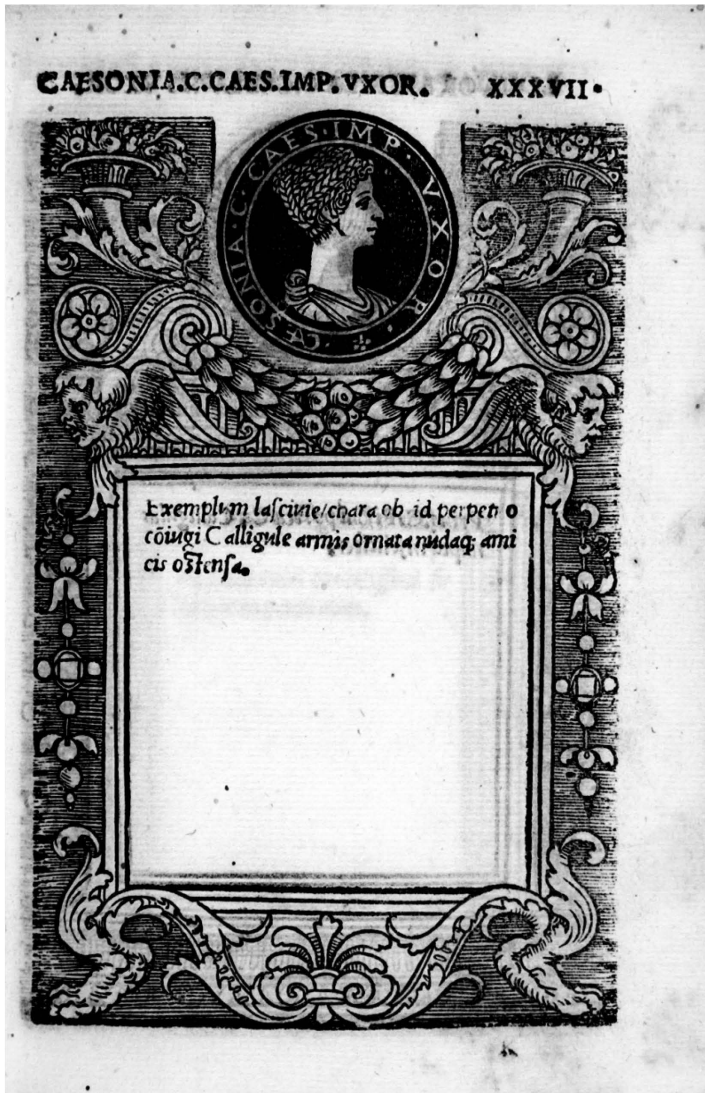 CAESONIA.C.CAES.IMP.VXOR. XXXVII.
CÆSONIA·C·CAES·IMP·VXOR·
Exemplum lasciuie/chara ob id perpetuo
cōiugi Calligule armis ornata nudaq; ami
cis ostensa.